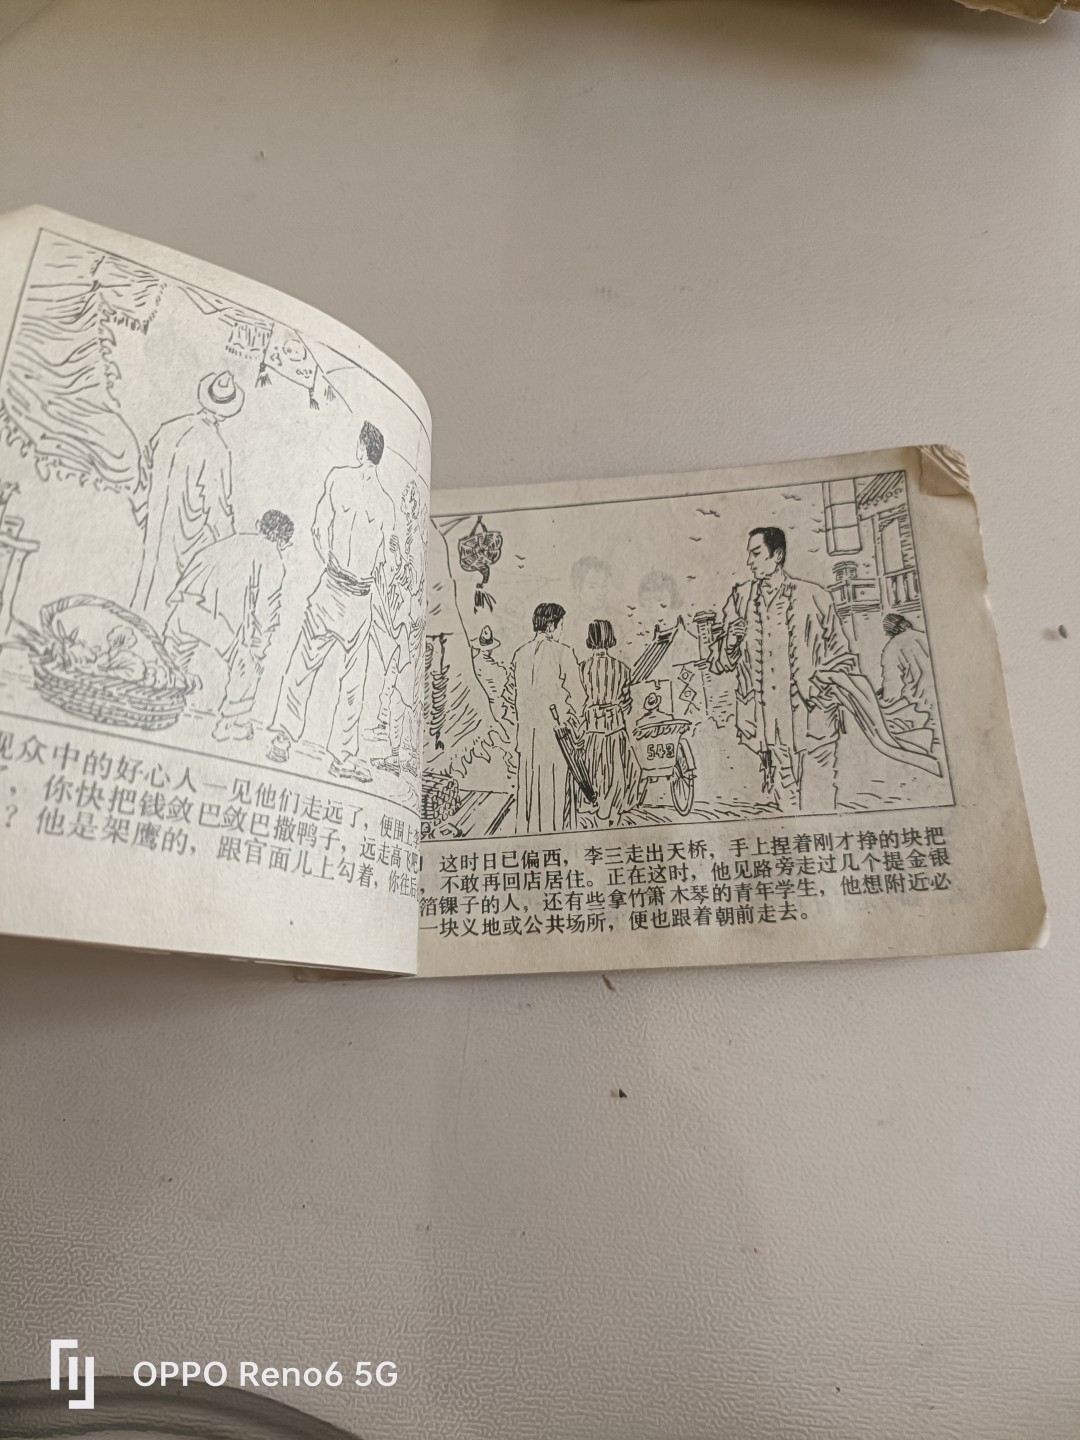 观众中的好心人一见他们走远了，便围上李
了，你快把钱敛巴敛巴撒鸭子，远走高飞吧！
？他是架鹰的，跟官面儿上勾着，你往后
543
这时日已偏西，李三走出天桥，手上捏着刚才挣的块把
，不敢再回店居住。正在这时，他见路旁走过几个提金银
箔锞子的人，还有些拿竹箫木琴的青年学生，他想附近必
一块义地或公共场所，便也跟着朝前走去。
OPPO Reno6 5G